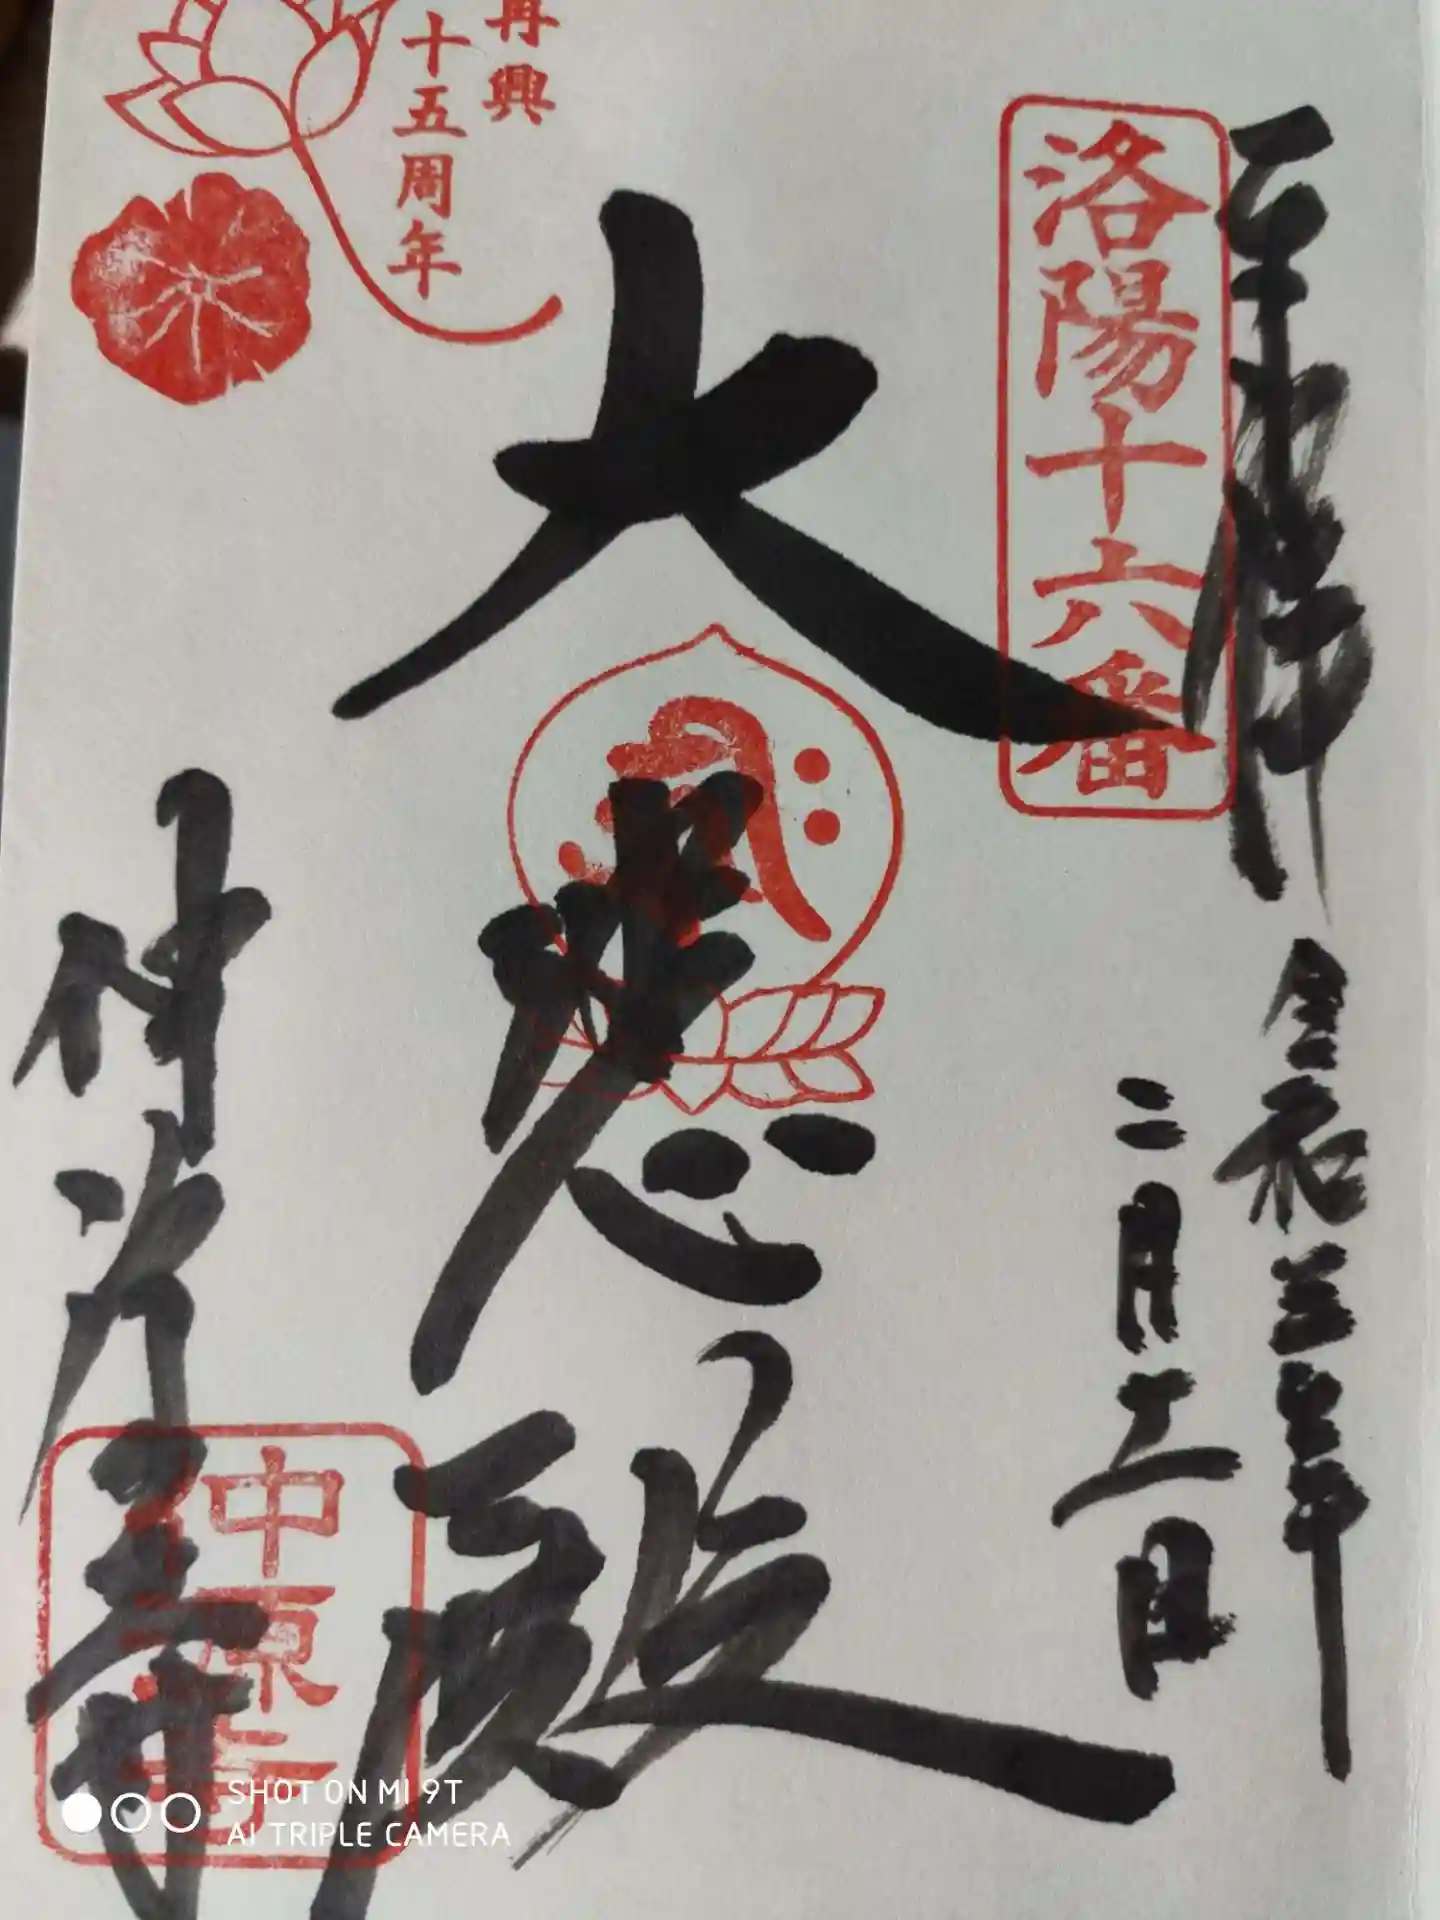 奉拝
令和三年
二月十一日
洛陽十六番
大悲殿
再興
十五周年
仲源寺
SHOT ON MI 9T
AI TRIPLE CAMERA